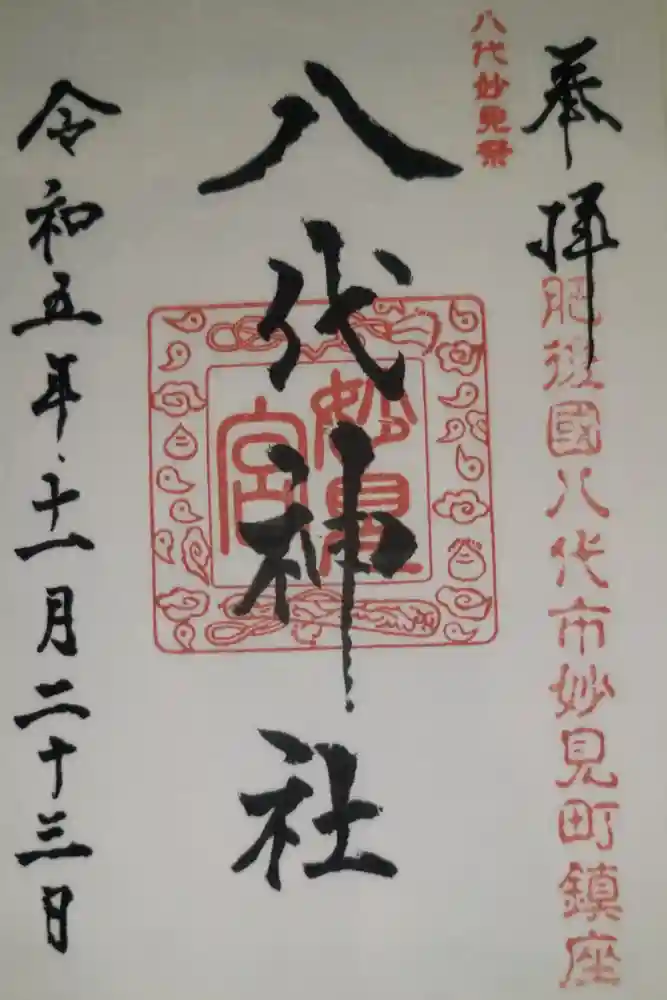 奉拝
肥後國八代市妙見町鎮座
八代妙見祭
八代神社
妙見
宮
令和五年十一月二十三日